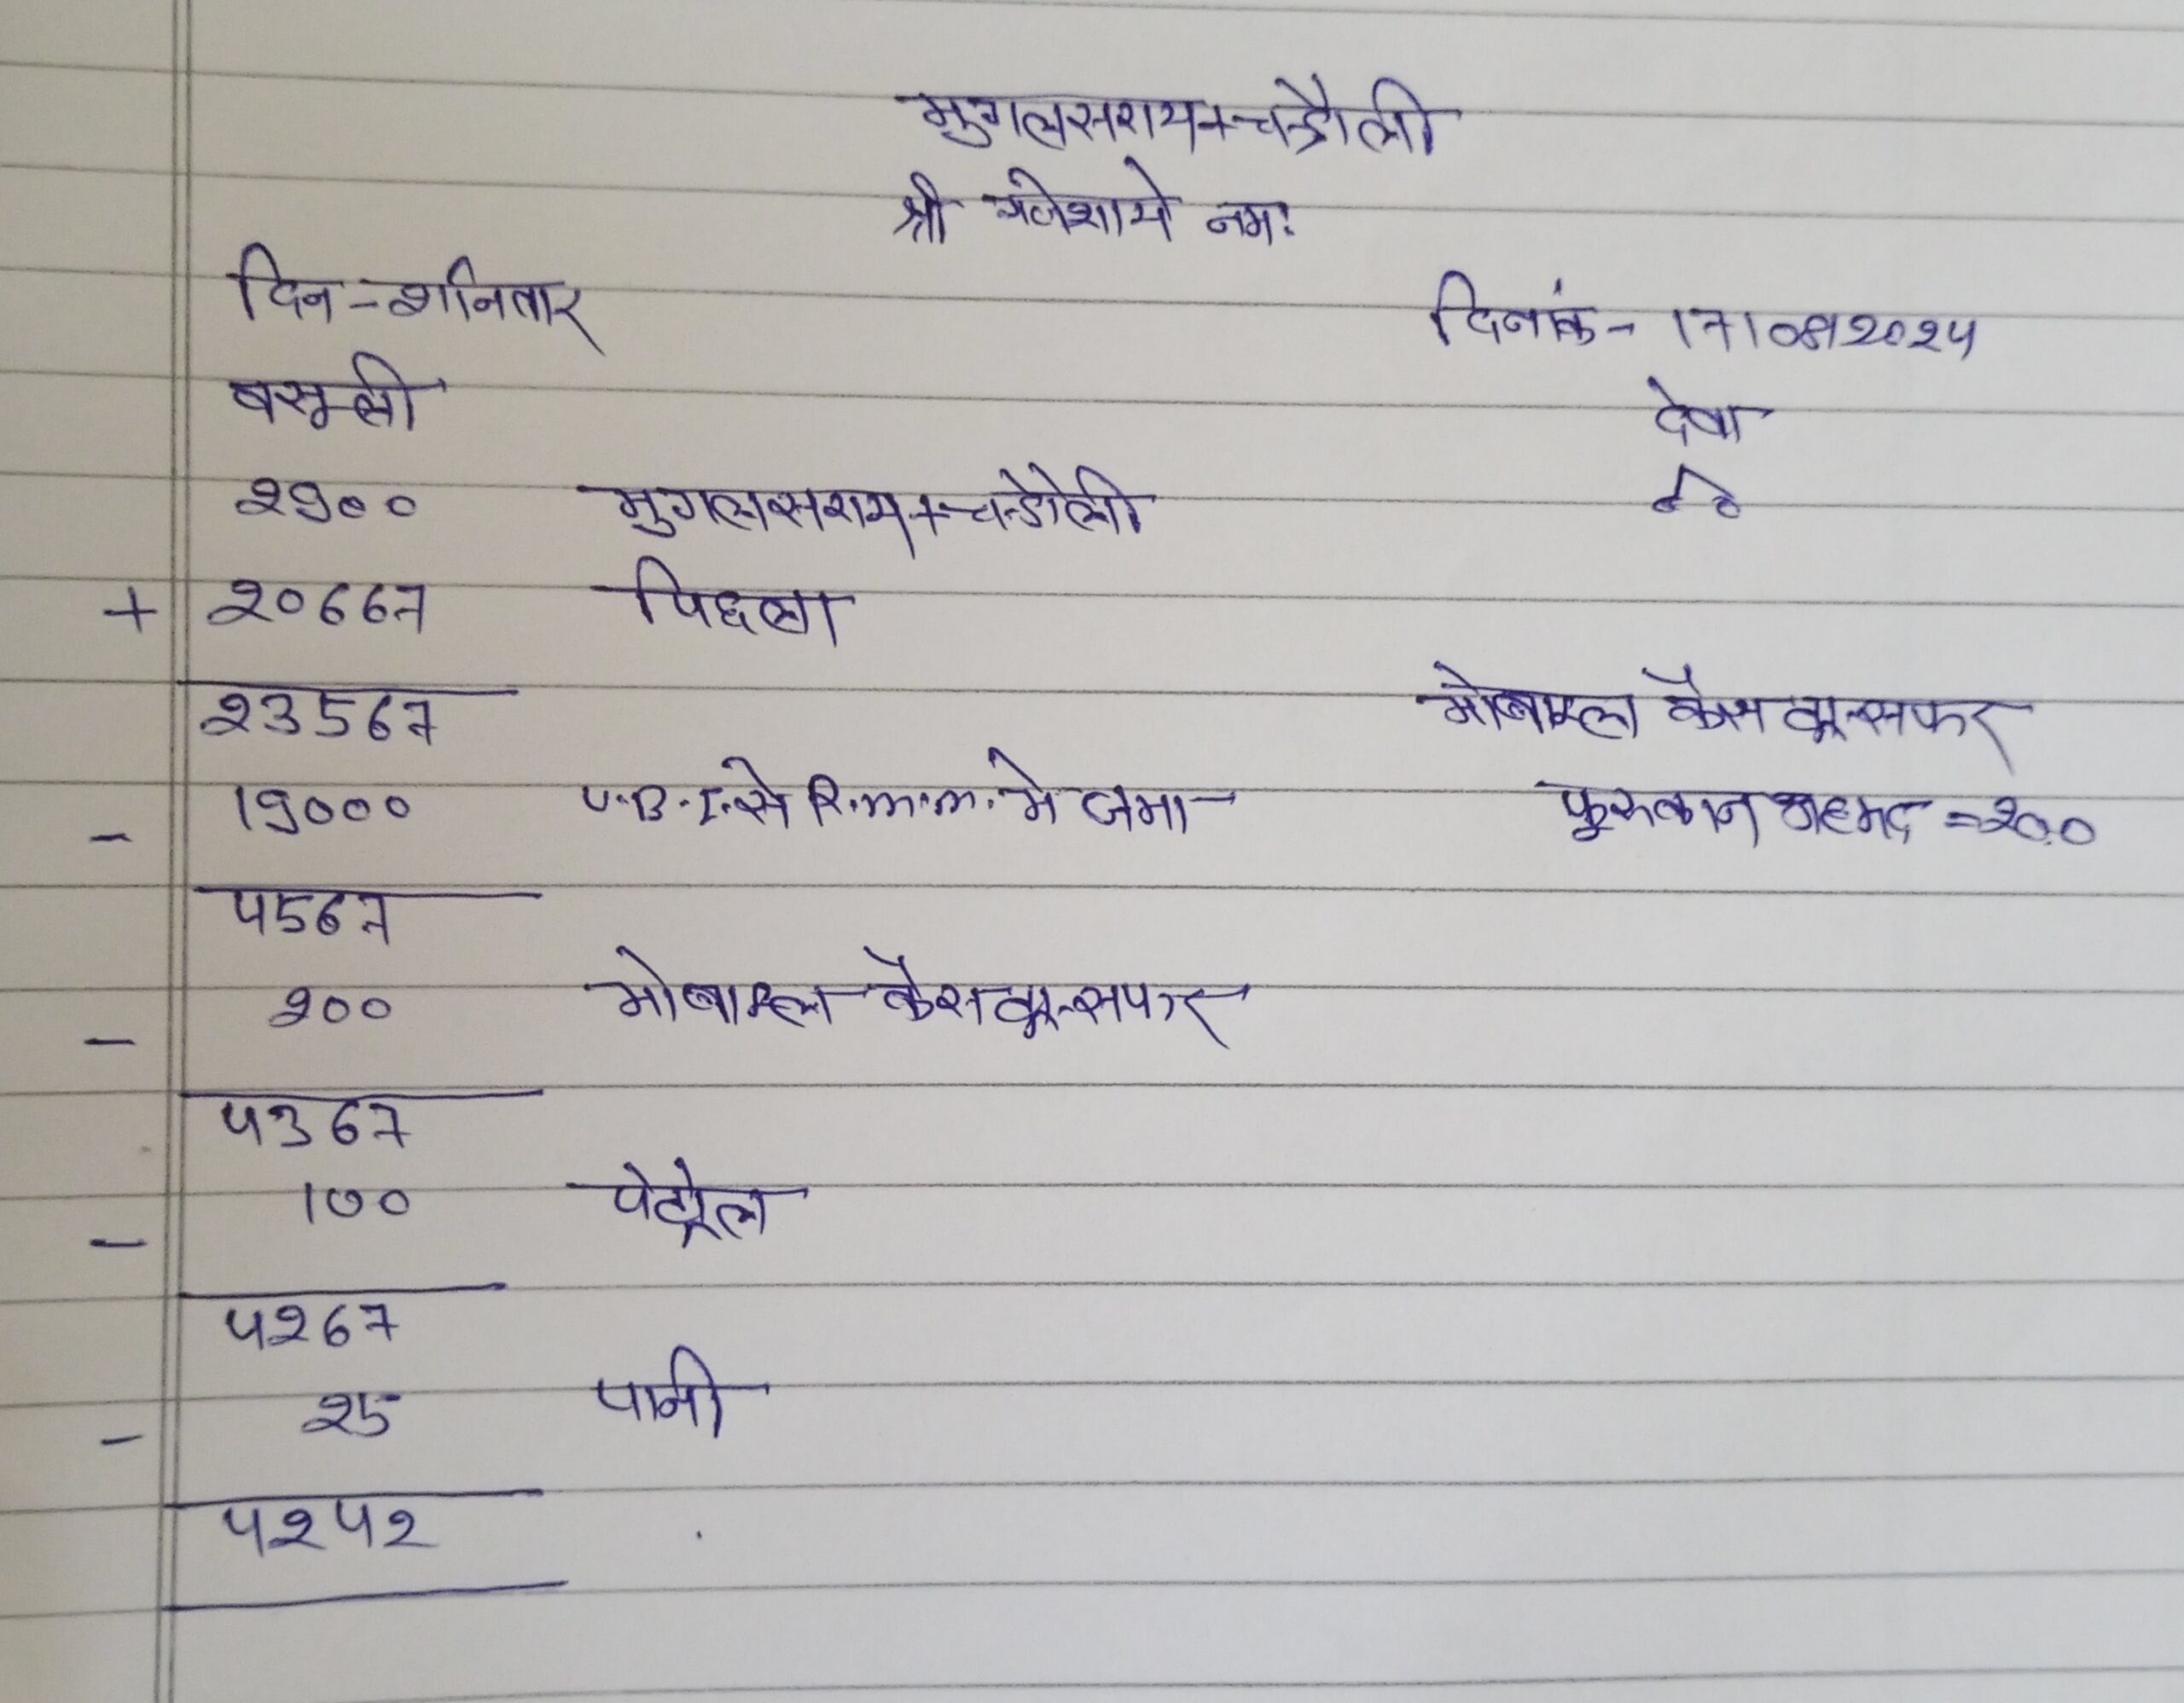 मुगलसराय+चन्दौली
श्री गणेशाये नमः
दिन-शनिवार
दिनांक- 17/08/2024
बसूली
देबा
2900 मुगलसराय+चन्दौली
+ 20667 पिछला
23567
मोबाइल कैस ट्रान्सफर
- 19000 U.B.I. से R.m.m. मे जमा
फुरकान अहमद =200
4567
- 200 मोबाइल कैस ट्रान्सफर
4367
- 100 पेट्रोल
4267
- 25 पानी
4242